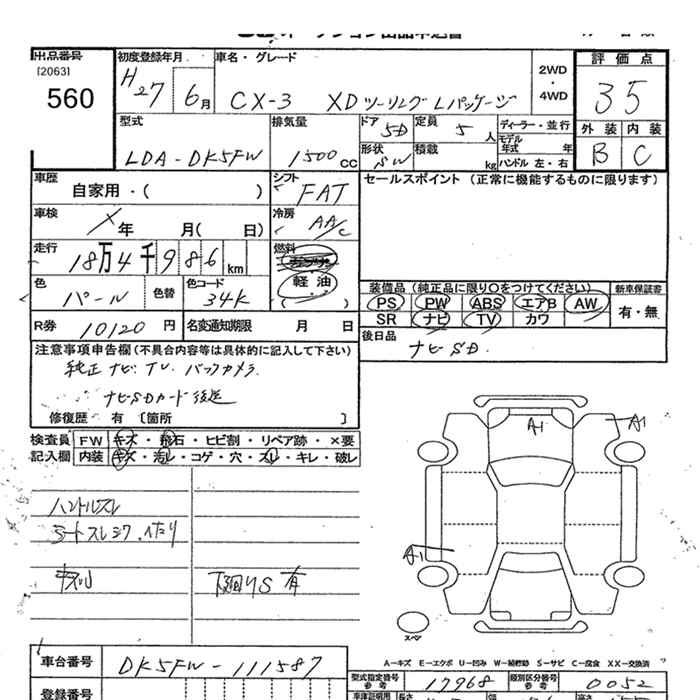 出品番号
[2063]
560
初度登録年月
H27 6月
車名・グレード
CX-3 XDツーリングLパッケージ
2WD
・
4WD
評価点
35
外装 内装
B C
型式
LDA-DK5FW
排気量
1500cc
ドア 5D
形状 SW
定員 5人
積載 kg
ディーラー・並行
モデル年式 年
ハンドル 左・右
車歴
自家用・( )
シフト
FAT
セールスポイント (正常に機能するものに限ります)
車検
年 月( 日)
冷房
AAC
走行
18万4千986km
燃料
軽油
( )
色
パール
色替
色コード
34K
装備品 (純正品に限り○をつけてください)
PS PW ABS エアB AW
SR ナビ TV カワ
新車保証書
有・無
R券 10120円
名変通知期限 月 日
後日品
ナビSD.
注意事項申告欄(不具合内容等は具体的に記入して下さい)
純正ナビ.TV.バックカメラ
ナビSDカード後送
修復歴 有 [箇所 ]
検査員 FW キズ・飛石・ヒビ割・リペア跡・×要
記入欄 内装 キズ・汚レ・コゲ・穴・スレ・キレ・破レ
ハンドルスレ
シートスレシワ.ヘタリ
下廻りS有
A1
A1
A1
スペア
A－キズ E－エクボ U－凹み W－補修跡 S－サビ C－腐食 XX－交換済
車台番号
DK5FW-111587
型式指定番号
参考
17968
類別区分番号
参考
0052
登録番号
車庫証明用
参考
長さ